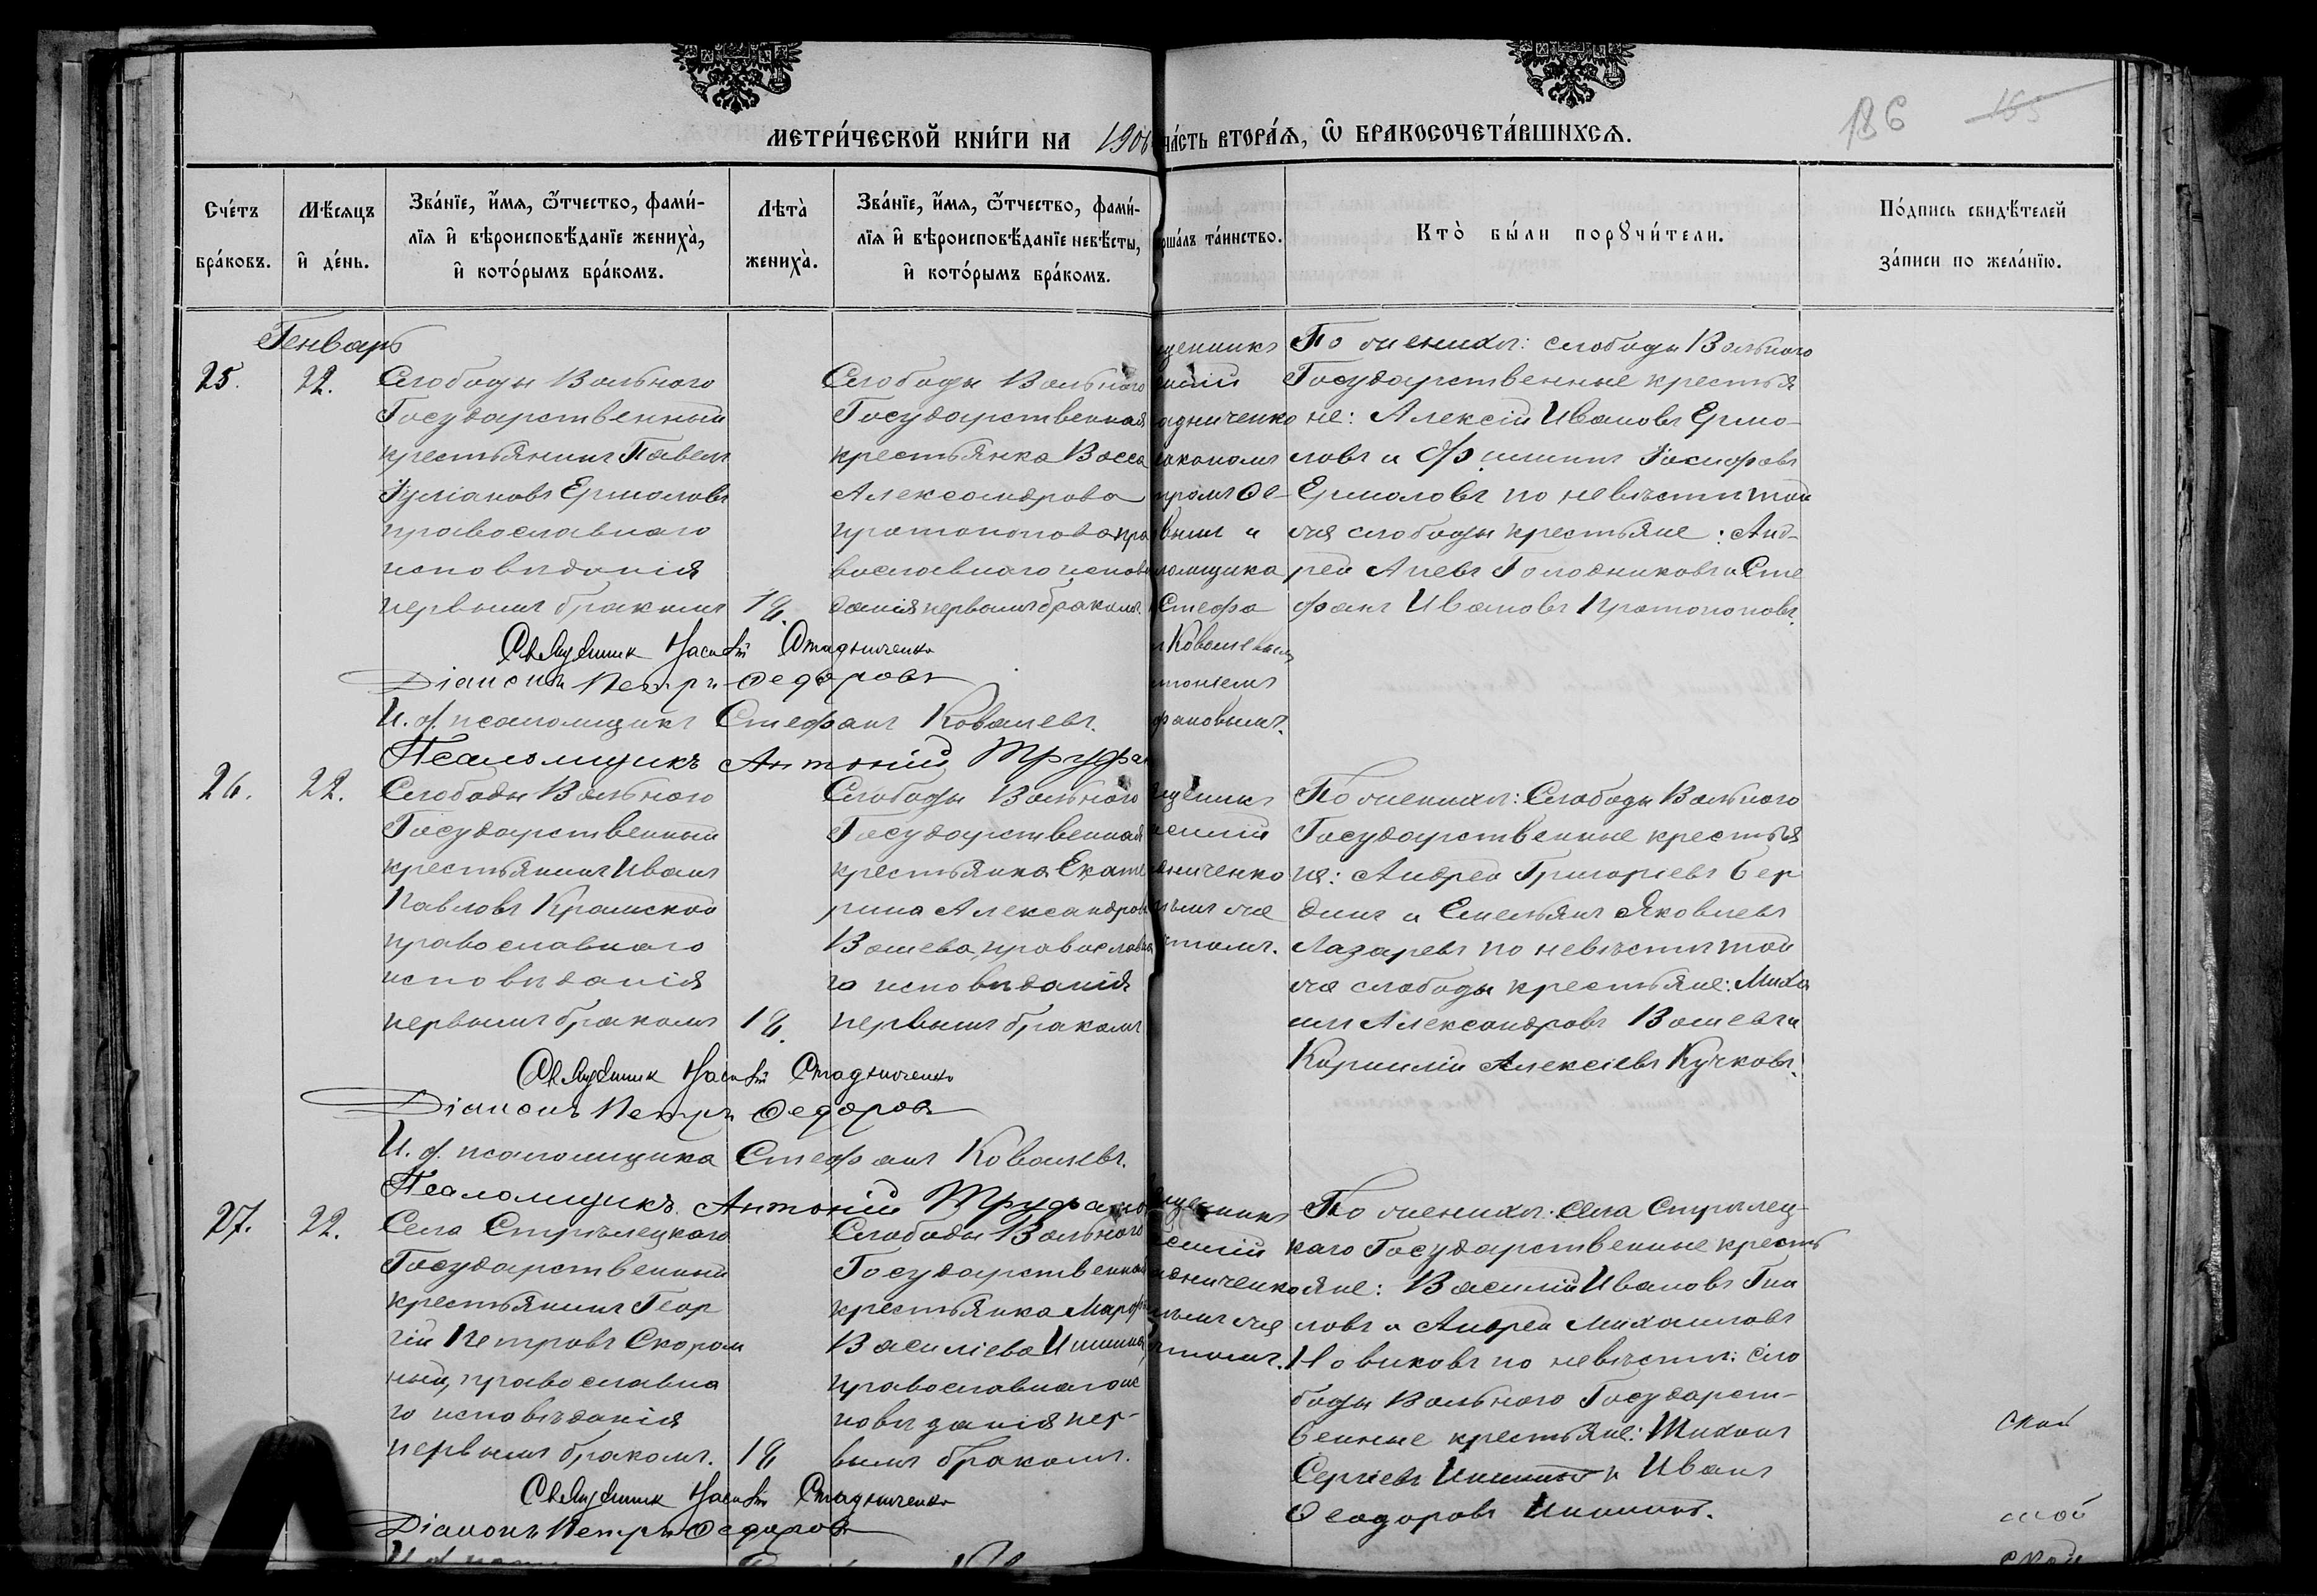 МЕТРИ́ЧЕСКОЙ КНИ́ГИ НА 1906
ЧА́СТЬ ВТОРА́Ѧ, Ѿ БРАКОСОЧЕТА́ВШИХСѦ.
186
165
Сче́тъ бра́ковъ.
Мѣ́сяцъ и҆ де́нь.
Зва́нїе, и҆́мѧ, ѻ҆́тчество, фами́-
лїѧ и҆ вѣроисповѣ́данїе жениха̀,
и҆ кото́рымъ бра́комъ.
Лѣта̀ жениха̀.
Зва́нїе, и҆́мѧ, ѻ҆́тчество, фами́-
лїѧ и҆ вѣроисповѣ́данїе невѣ́сты,
и҆ кото́рымъ бра́комъ.
рша́лъ та́инство.
Кто̀ бы́ли порꙋчи́тели.
По́дпись свидѣ́телей
за́писи по жела́нїю.
Генварь
25.
22.
Слободы Вольного
Государственный
крестьянинъ Павелъ
Іуліановъ Ермоловъ
православнаго
исповѣданія
первымъ бракомъ
18.
Слободы Вольного
Государственная
крестьянка Васса
Александрова
Протопопова пра
вославнаго исповѣ
данія первымъ бракомъ.
щенникъ
силій
адниченко
іакономъ
тромъ Ѳе-
вымъ и
ломщика
Стефа
Ковалевымъ
тоніемъ
фановымъ.
По женихѣ: слободы Вольного
Государственные крестья
не: Алексій Ивановъ Ермо-
ловъ и Филиппъ Іосифовъ
Ермоловъ по невѣстѣ той
же слободы крестьяне: Анд-
рей Голодниковъ и Сте
фанъ Ивановъ Протопоповъ.
Священник Василій Стадниченко
Діаконъ Петръ Ѳедоровъ
И. д. псаломщика Стефанъ Ковалевъ.
Псаломщикъ Антоній Труфан
26.
22.
Слободы Вольного
Государственный
крестьянинъ Иванъ
Павловъ Крамской
православнаго
исповѣданія
первымъ бракомъ
18.
Слободы Вольного
Государственная
крестьянка Екате
рина Александрова
Вошева, православна
го исповѣданія
первымъ бракомъ
щенникъ
силій
дниченко
тѣмъ же
чтомъ.
По женихѣ: Слободы Вольного
Государственные крестья
не: Андрей Григорьевъ Бер
динъ и Емельянъ Яковлевъ
Лазаревъ по невѣстѣ той
же слободы крестьяне: Миха
илъ Александровъ Вошевъ и
Кириллъ Алексіевъ Кучковъ.
Священник Василій Стадниченко
Діаконъ Петръ Ѳедоровъ
И. д. псаломщика Стефанъ Ковалевъ.
Псаломщикъ Антоній Труфано
27.
22.
Села Стрѣлецкаго
Государственный
крестьянинъ Геор
гій Петровъ Скором
ный, православна
го исповѣданія
первымъ бракомъ.
18
Слободы Вольного
Государственная
крестьянка Марфа
Василіева Ишина
православнаго ис
повѣданія пер-
вымъ бракомъ.
щенникъ
силій
адниченко
тѣмъ же
чтомъ.
По женихѣ: села Стрѣлец-
каго Государственные кресть
яне: Василій Ивановъ Гни
ловъ и Андрей Михаиловъ
Новиковъ по невѣстѣ: Сло
боды Вольного Государст-
венные крестьяне: Тихонъ
Сергіевъ Ишинъ и Иванъ
Ѳеодоровъ Ишинъ.
Священник Василій Стадниченко
Діаконъ Петръ Ѳедоровъ
ской
ской